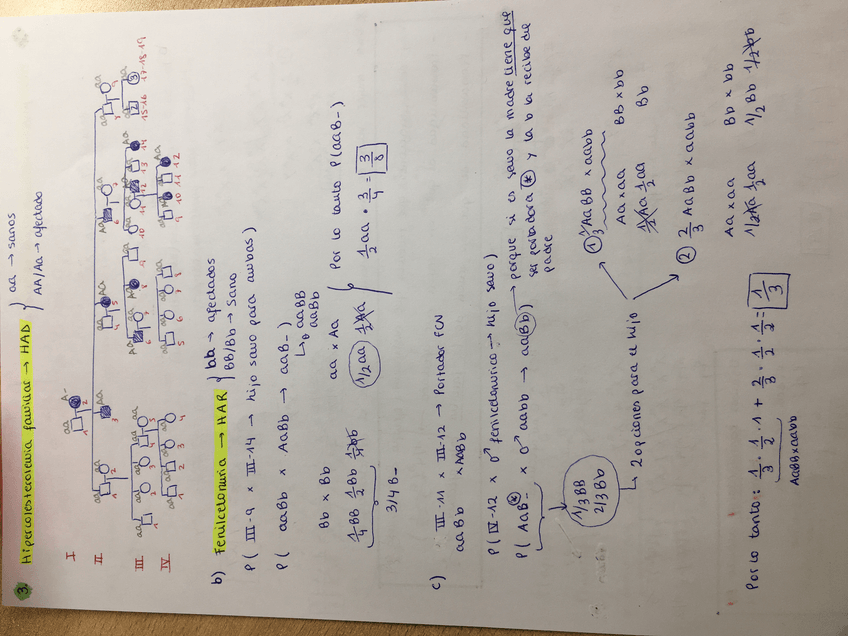 3. Hipercolesterolemia familiar → HAD { aa → sanos
AA/Aa → afectado
I
aa A-
1 2
II
aa aa Aa aa Aa Aa aa aa aa
1 2 3 4 5 6 7 8 9
III
IV
b) Fenilcetonuria → HAR { bb → afectados
BB/Bb → sano
P( III-9 x III-14 → hijo sano para ambas)
P( aaBb x AaBb → aaB_ )
↳ aaBB
aaBb
Bb x Bb aa x Aa
1/4 BB 1/2 Bb 1/4 bb 1/2 aa 1/2 Aa } Por lo tanto P(aaB_)
3/4 B_ 1/2 aa · 3/4 = 3/8
c) III-11 x III-12 → Portador FCN
aaBb x AaBb
P( IV-12 x ♂ fenilcetonurico → hijo sano)
P( AaB_* x ♂ aabb → aaBb ) → porque si es sano la madre tiene que
ser portadora * y la b la recibe del
padre
1/3 BB
2/3 Bb
↳ 2 opciones para el hijo
① 1/3 AaBB x aabb
Aa x aa BB x bb
1/2 Aa 1/2 aa Bb
② 2/3 AaBb x aabb
Aa x aa Bb x bb
1/2 Aa 1/2 aa 1/2 Bb 1/2 bb
Por lo tanto: 1/3 · 1/2 · 1 + 2/3 · 1/2 · 1/2 = 1/3
AaBB x aabb